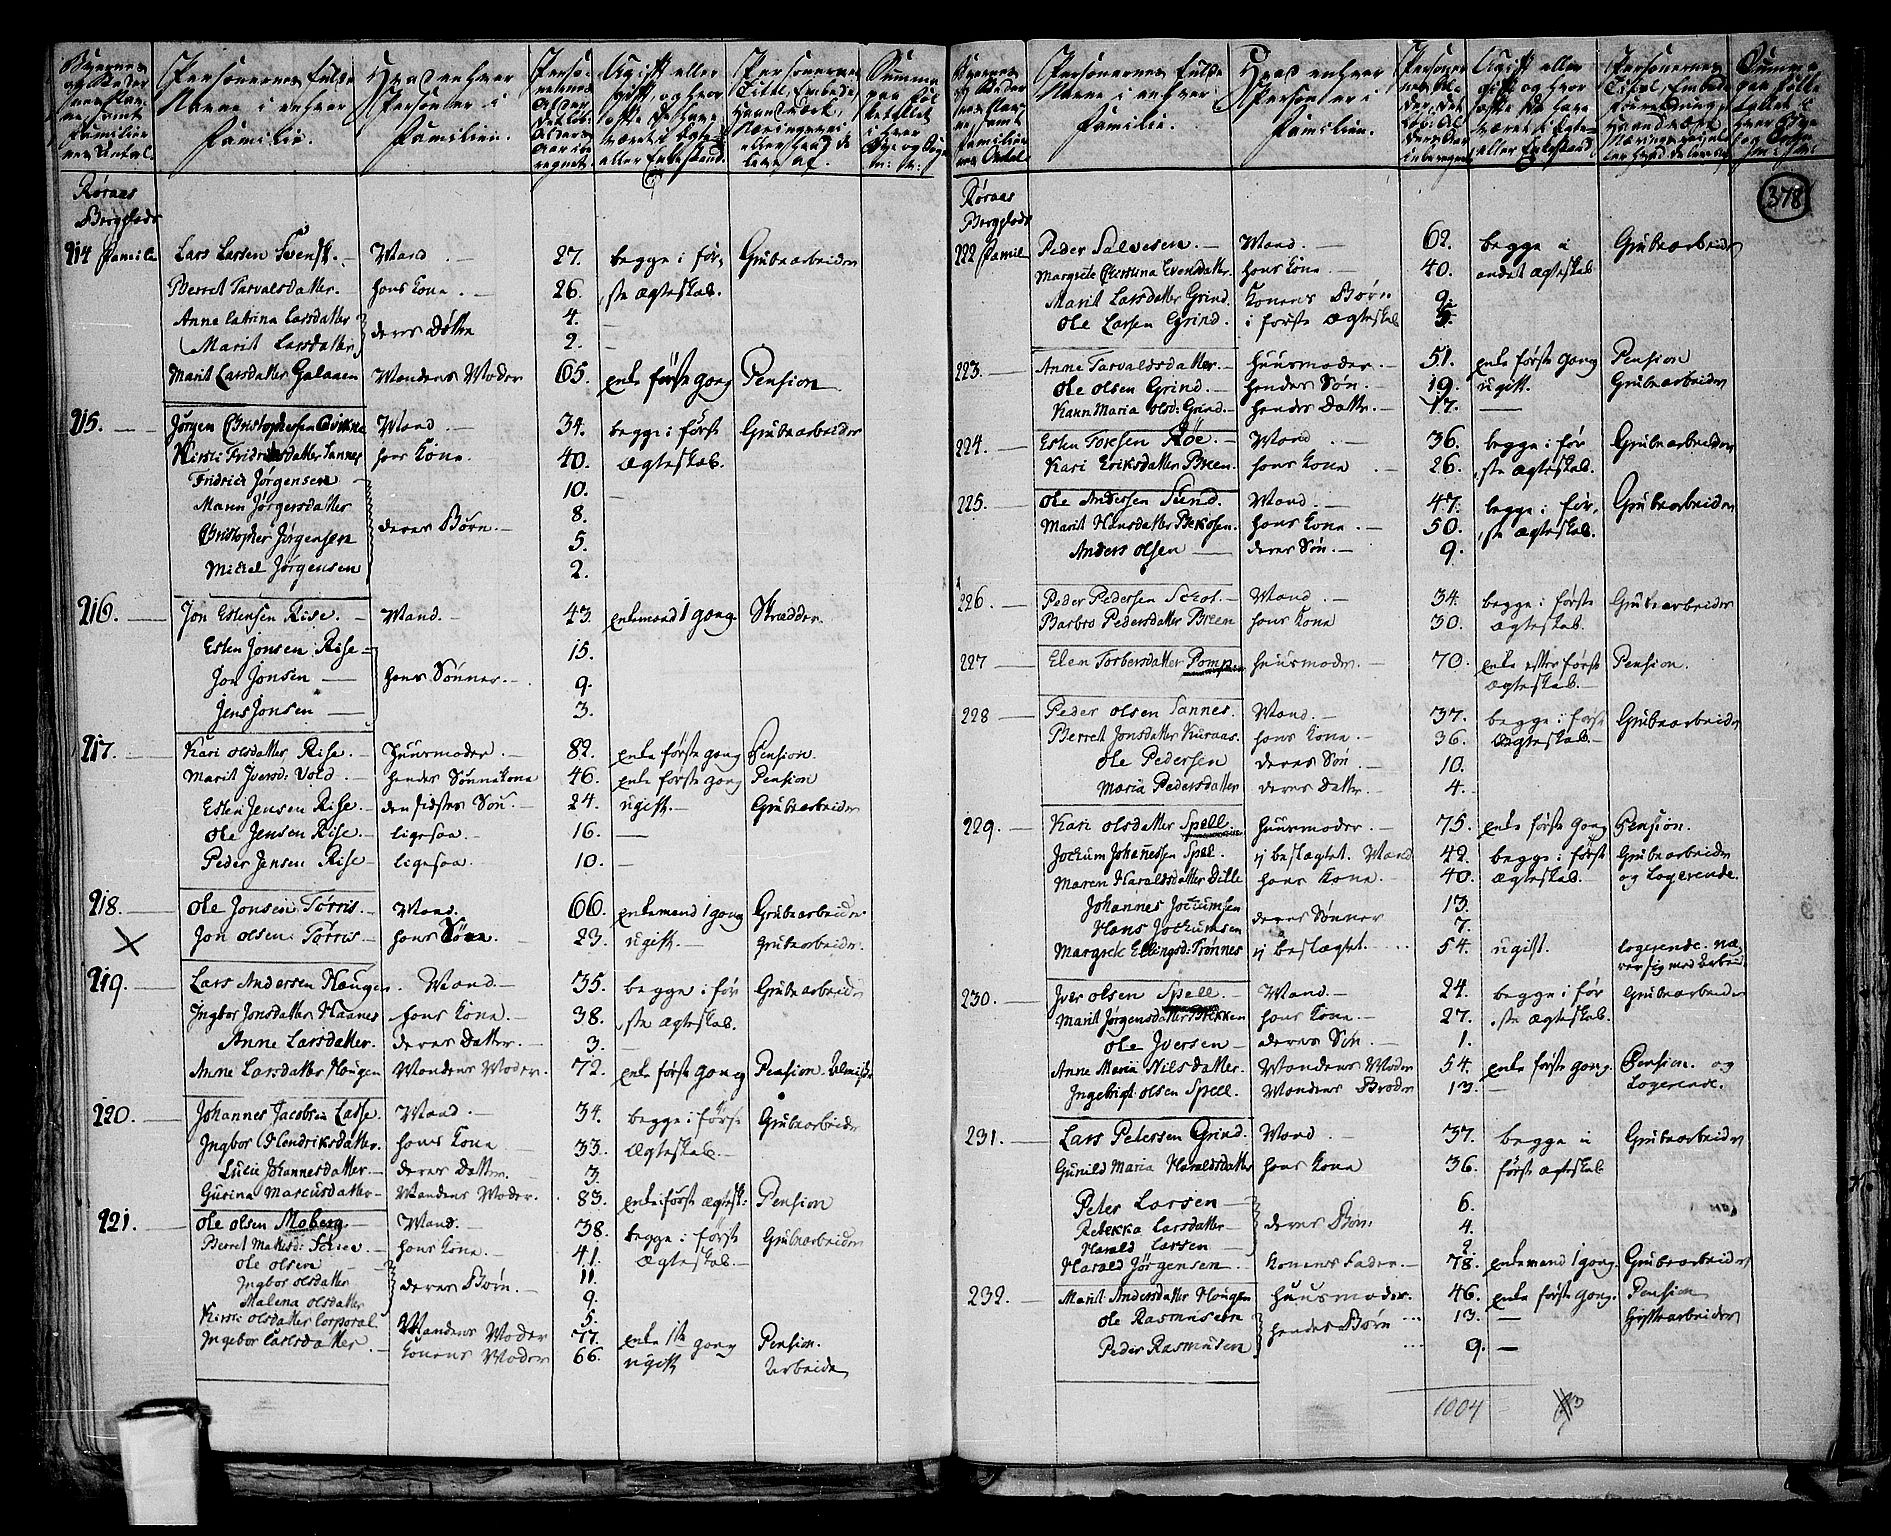 Personernes fulde Navne i enhver Familie.
Hvad enhver Person er i Familien.
Røraas
Bergstads
214 Famil. Lars Larsen Svensk. Mand. 27. begge i før- Grubearbeider
Berret Tarvalsdatter. hans Kone. 26. ste Ægteskab.
Anne Catrina Larsdatter 4.
deres Døttre
Marit Larsdatter 2.
Marit Larsdatter Galaaen Mandens Moder 65. enke første gang Pension
215. Jørgen Christophersen Qvikne Mand. 34. begge i første Grubearbeider
Kirsti Fridrichsdatter Sannes hans Kone. 40. Ægteskab.
Fridrich Jørgensen 10.
Maren Jørgensdatter 8.
deres Børn.
Christopher Jørgensen 5.
Mickel Jørgensen 2.
216. Jon Estensen Rise. Mand. 43. enkemand 1 gang. Skrædder.
Esten Jonsen Rise 15.
Jon Jonsen hans Sønner. 9.
Jens Jonsen 3.
217. Kari Olsdatter Rise. Huusmoder. 82. enke første gang Pension.
Marit Iversd: Vold. hendes Sønnekone 46. enke første gang Pension
Esten Jensen Rise. den sidstes Søn. 24. ugift. Grubearbeider
Ole Jensen Rise. ligesaa. 16.
Peder Jensen Rise ligesaa. 10.
218. Ole Jonsen Tørris. Mand. 66. enkemand 1 gang Grubearbeider
Jon Olsen Tørris. hans Søn 23. ugift. Grubearbeider.
219. Lars Andersen Hougen. Mand. 35. begge i før Grubearbeider
Ingbor Jonsdatter Haanes hans Kone. 38. ste Ægteskab.
Anne Larsdatter. deres Datter. 3.
Anne Larsdatter Hougen Mandens Moder. 72. enke første gang Pension.
220. Johannes Jacobsen Lasse. Mand. 34. begge i første Grubearbeider
Ingbor Hendriksdatter. hans Kone 33. Ægteskab.
Lucie Johannesdatter. deres Datter. 3.
Gurina Marcusdatter Mandens Moder. 83. enke i første Ægtesk: Pension
221. Ole Olsen Moberg Mand. 38. begge i første Grubearbeider
Berret hans Kone. 41. Ægteskab.
Ole Olsen 11.
Ingbor Olsdatter deres Børn. 9.
Malena Olsdatter 5.
Kirsti Olsdatter Corporal Mandens Moder 77. enke 1ste gang Pension.
Ingebor Carlsdatter. Konens Moder 66. ugift Arbeide
Personernes fulde Navne i enhver Familie.
Hvad enhver Person er i Familien.
378
Røraas
Bergstads
222 Famil Peder Salvesen. Mand. 62. begge i Grubearbeider
Margrete Christina Evensdatter. hans Kone. 40. andet Ægteskab
Marit Larsdatter Grind. Konens Børn 9.
Ole Larsen Grind. i første Ægteskab
223. Anne Tarvaldsdatter. Huusmoder. 51. enke første gang Pension
Ole Olsen Grind. hendes Søn. 19. ugift. Grubearbeider
Karen Maria Olsd: Grind. hendes Datter. 17.
224. Esten Toresen Røe. Mand. 36. begge i før Grubearbeider
Kari Eriksdatter Breen. hans Kone 26. ste Ægteskab.
225. Ole Andersen Sund. Mand. 47. begge i før- Grubearbeider
Marit Hansdatter hans Kone. 50. ste Ægteskab.
Anders Olsen deres Søn. 9.
226. Peder Pedersen Mand. 34. begge i første Grubearbeider
Barbro Pedersdatter Breen hans Kone 30. Ægteskab.
227 Elen Torbersdatter Huusmoder. 70. enke efter første Pension.
Ægteskab.
228 Peder Olsen Sannes. Mand. 37. begge i første Grubearbeider
Berret Jonsdatter Kuraas. hans Kone. 36. Ægteskab.
Ole Pedersen deres Søn. 10.
Maria Pedersdatter deres Datter. 4.
229. Kari Olsdatter Spell. Huusmoder. 75. enke første gang Pension.
Jochum Johannessen Spel. ej beslægtet. Mand 42. begge i første Grubearbeider
Maren Haraldsdatter Dille hans Kone. 40. Ægteskab. og Logerende.
Johannes Jochumsen 13.
deres Sønner
Hans Jochumsen 7.
Margrete Ellingsd: Trønnes ej beslægtet 54. ugift. logerende. næ
rer sig med Arbeide
230. Iver Olsen Spell. Mand. 24. begge i før Grubearbeider
Marit Jørgensdatter Brekken hans Kone. 27. ste Ægteskab.
Ole Iversen deres Søn. 1.
Anne Maria Nilsdatter. Mandens Moder 54. enke første gang. Pension. og
Ingebrigt Olsen Spell. Mandens Broder 13. Logerende.
231. Lars Petersen Grind. Mand. 37. begge i Grubearbeider
Gunild Maria Haraldsdatter hans Kone 36. første Ægteskab
Peter Larsen 6.
Rebekka Larsdatter deres Børn 4.
Harald Larsen 2.
Harald Jørgensen Konens Fader. 78. enkemand 1 gang. Grubearbeider
232. Marit Andersdatter Hougen Huusmoder. 46. enke første gang. Pension
Ole Rasmusen hendes Børn 13. Hyttearbeider
Peder Rasmusen 9.
1004